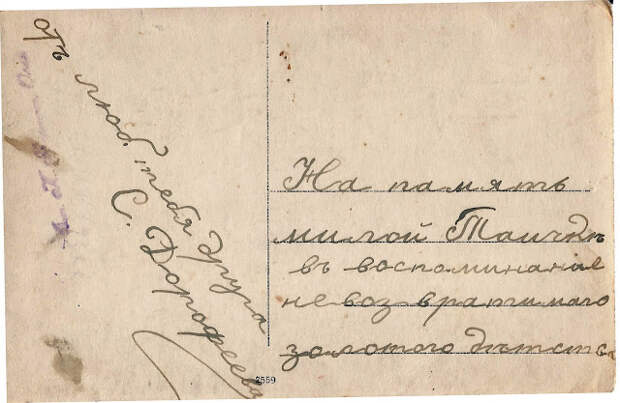 отъ люб. тебя друга
С. Дорофеева
На память
милой Таичкѣ
въ воспоминание
невозвратимаго
золотого дѣтства
2559